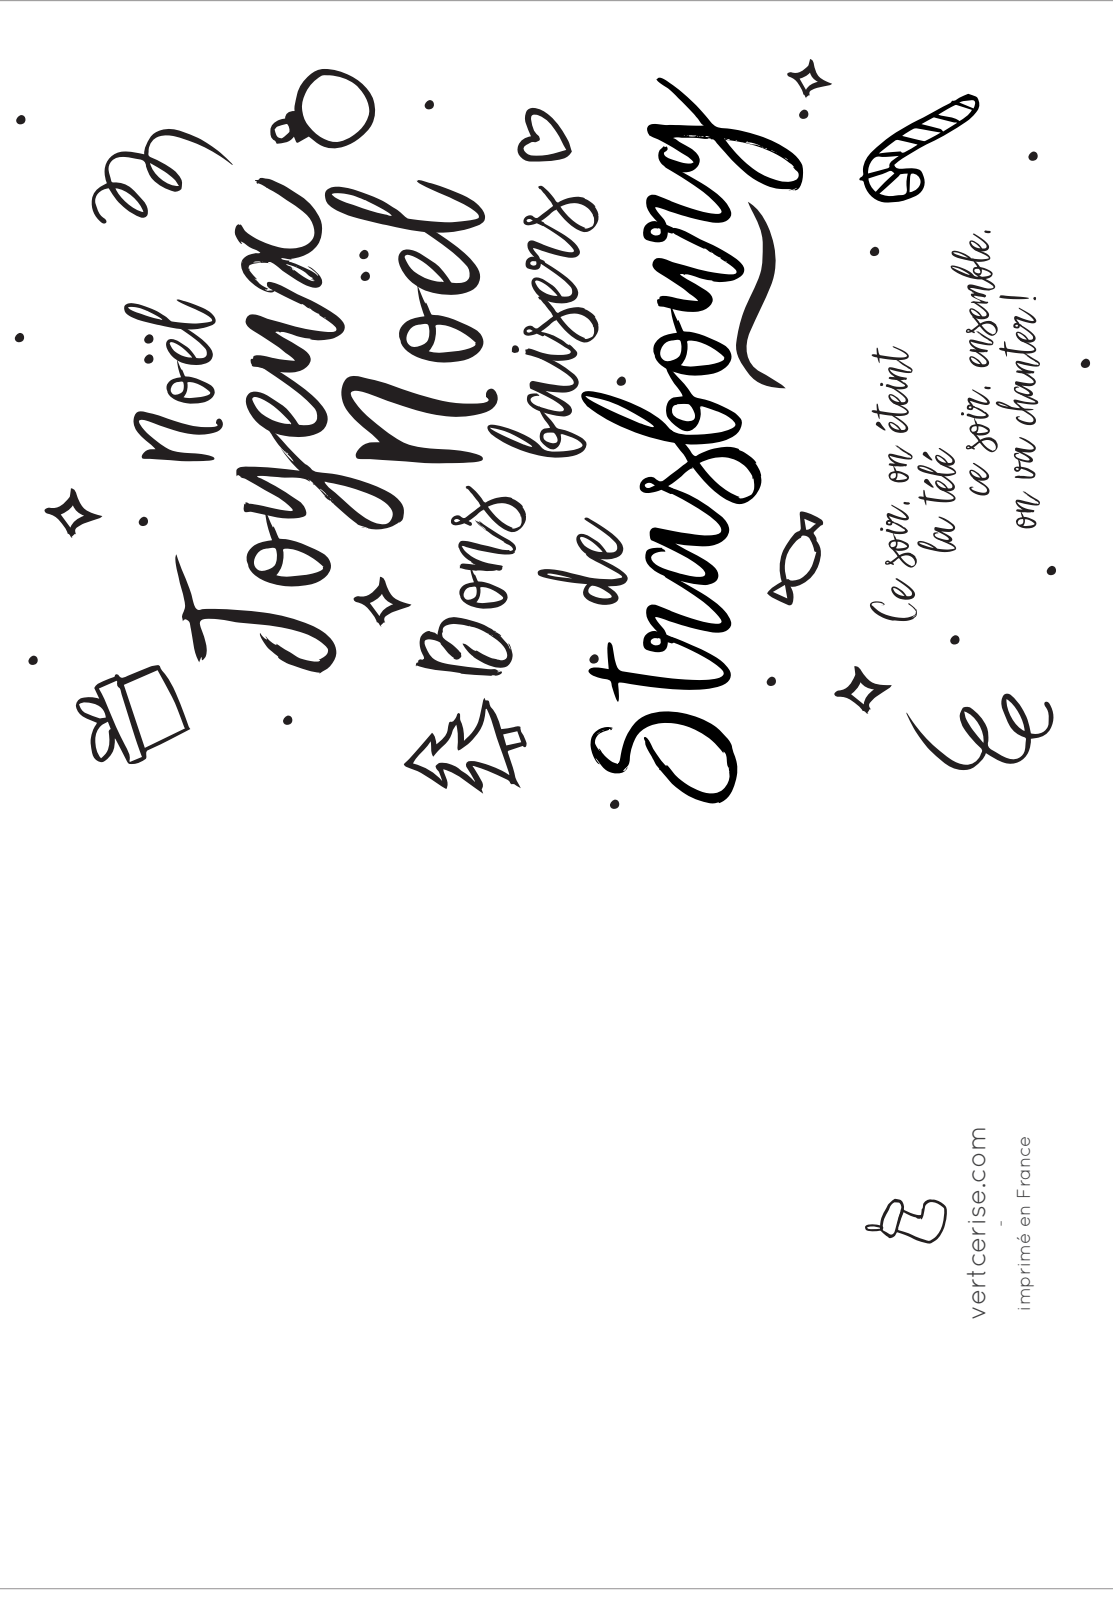 Noël
Joyeux
Noël
Bons baisers
de
Strasbourg
Ce soir, on éteint
la télé
ce soir, ensemble,
on va chanter !
vertcerise.com
-
imprimé en France